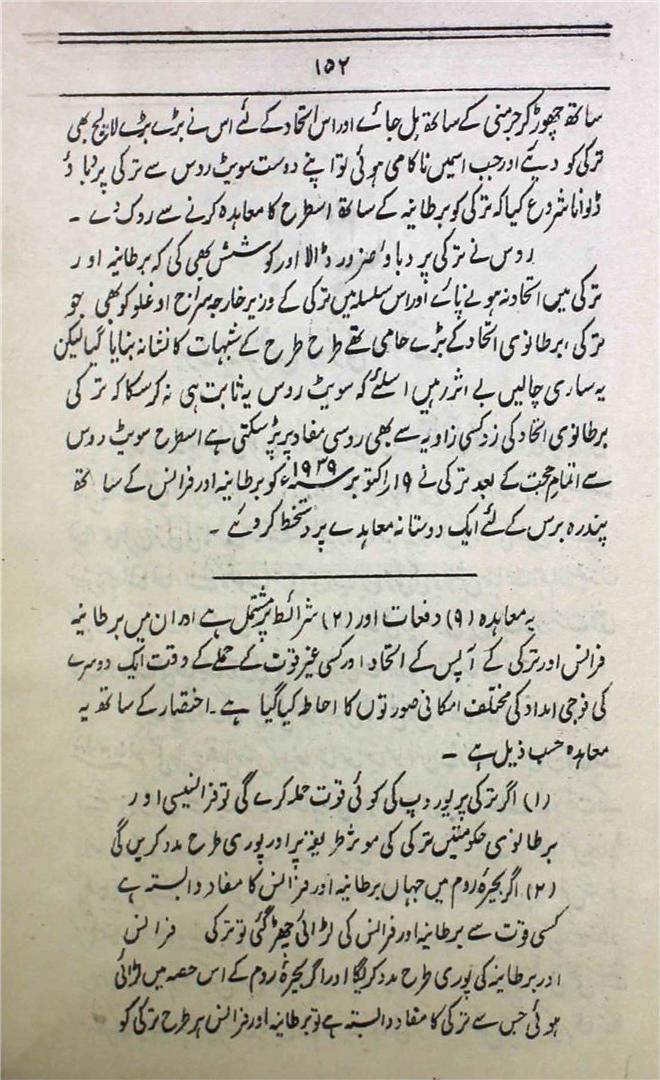 ۱۵۲
ساتھ چھوڑ کر جرمنی کے ساتھ مل جائے اور اس اتحاد کے لئے اس نے بڑے بڑے لالچ بھی
ترکی کو دیئے اور جب اسمیں ناکامی ہوئی تو اپنے دوست سویٹ روس سے ترکی پر دباؤ
ڈلوانا شروع کیا کہ ترکی کو برطانیہ کے ساتھ اسطرح کا معاہدہ کرنے سے روک دے ۔
روس نے ترکی پر دباؤ ضرور ڈالا اور کوشش بھی کی کہ برطانیہ اور
ترکی میں اتحاد نہ ہونے پائے اور اس سلسلہ میں ترکی کے وزیر خارجہ سراج اوغلو کو بھی جو
ترکی، برطانوی اتحاد کے بڑے حامی تھے طرح طرح کے شبہات کا نشانہ بنایا گیا لیکن
یہ ساری چالیں بے اثر رہیں اسلئے کہ سویٹ روس یہ ثابت ہی نہ کر سکا کہ ترکی
برطانوی اتحاد کی زد کسی زاویہ سے بھی روسی مفاد پر پڑ سکتی ہے اسطرح سویٹ روس
سے اتمام حجت کے بعد ترکی نے ۱۹ر اکتوبر ۱۹۳۹ء کو برطانیہ اور فرانس کے ساتھ
پندرہ برس کے لئے ایک دوستانہ معاہدے پر دستخط کر دئے ۔
یہ معاہدہ (۹) دفعات اور (۲) شرائط پر مشتمل ہے اور ان میں برطانیہ
فرانس اور ترکی کے آپس کے اتحاد اور کسی غیر قوت کے حملے کے وقت ایک دوسرے
کی فوجی امداد کی مختلف امکانی صورتوں کا احاطہ کیا گیا ہے ۔ اختصار کے ساتھ یہ
معاہدہ حسب ذیل ہے ۔
(۱) اگر ترکی پر یوروپ کی کوئی قوت حملہ کرے گی تو فرانسیسی اور
برطانوی حکومتیں ترکی کی موثر طریقہ پر اور پوری طرح مدد کریں گی
(۲) اگر بحیرۂ روم میں جہاں برطانیہ اور فرانس کا مفاد وابستہ ہے
کسی قوت سے برطانیہ اور فرانس کی لڑائی چھڑ گئی تو ترکی فرانس
اور برطانیہ کی پوری طرح مدد کریگا اور اگر بحیرۂ روم کے اس حصہ میں لڑائی
ہوئی جس سے ترکی کا مفاد وابستہ ہے تو برطانیہ اور فرانس ہر طرح ترکی کو